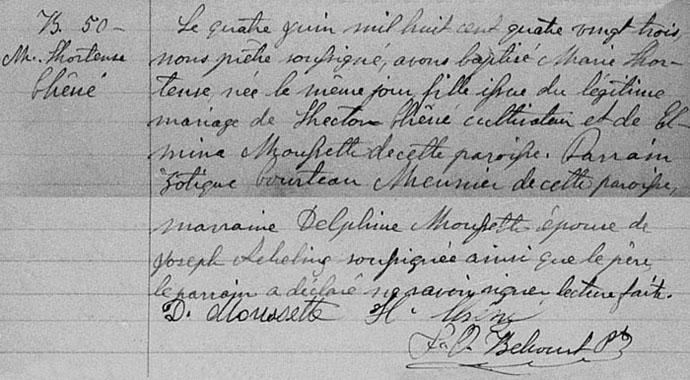 B. 50-
M. Hortense
Chêné
Le quatre juin mil huit cent quatre vingt trois,
nous prêtre soussigné, avons baptisé Marie Hor-
tense, née le même jour fille issue du légitime
mariage de Hector Chêné cultivateur et de El-
mina Moussette de cette paroisse. Parrain
Zotique bourteau Meunier de cette paroisse,
marraine Delphine Moussette épouse de
Joseph soussignée ainsi que le père
le parrain a déclaré ne savoir signer lecture faite.
D. Moussette H.
Belcourt Ptr